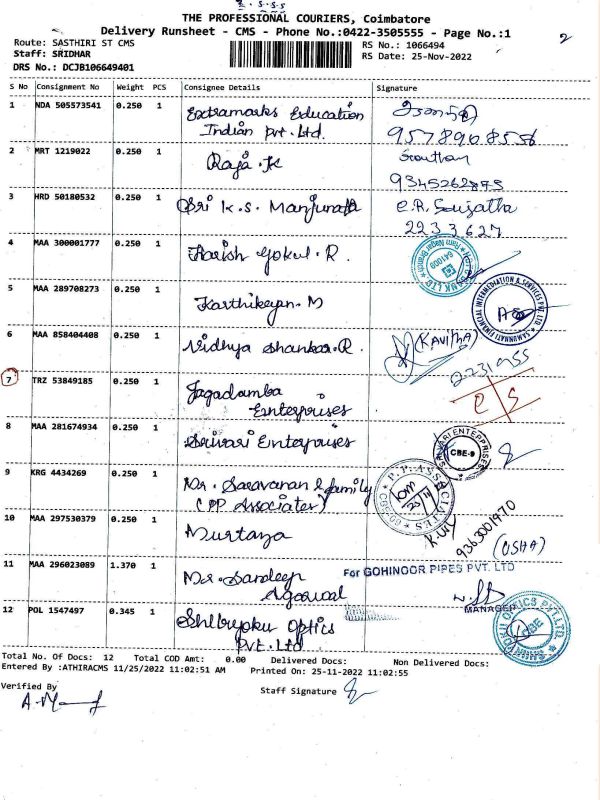 THE PROFESSIONAL COURIERS, Coimbatore
Delivery Runsheet - CMS - Phone No.:0422-3505555 - Page No.:1
Route: SASTHIRI ST CMS
Staff: SRIDHAR
DRS No.: DCJB106649401
RS No.: 1066494
RS Date: 25-Nov-2022
2
S No Consignment No Weight PCS Consignee Details Signature
1 NDA 505573541 0.250 1 Extramarks Education
Indian Pvt. Ltd.
2 MRT 1219022 0.250 1 Raja .K Gowtham
9345262873
3 HRD 50180532 0.250 1 Sri K.S. Manjunath C.R. Sujatha
2233627
4 MAA 300001777 0.250 1 Harish Gokul . R
641009
Ram Nagar Branch
5 MAA 289708273 0.250 1 Karthikeyan. M
SAMUNNATI FINANCIAL INTERMEDIATION & SERVICES PVT. LTD.
6 MAA 858404408 0.250 1 Vidhya Shankar. R (KAVITHA)
2231955
7 TRZ 53849185 0.250 1 Jagadamba
Enterprises
C/S
8 MAA 281674934 0.250 1 Srivari Enterprises
SRIVARI ENTERPRISES
CBE-9
9 KRG 4434269 0.250 1 Mr. Saravanan & family
(PP Associates)
P.P. ASSOCIATES
10 MAA 297530379 0.250 1 Murtaza
9363001970
(USHA)
11 MAA 296023089 1.370 1 Mr. Sandeep
Agarwal
For GOHINOOR PIPES PVT. LTD
MANAGER
12 POL 1547497 0.345 1 Shibupku Optics
Pvt. Ltd
OPTICS PVT. LTD.
CBE
Total No. Of Docs: 12 Total COD Amt: 0.00 Delivered Docs: Non Delivered Docs:
Entered By :ATHIRACMS 11/25/2022 11:02:51 AM Printed On: 25-11-2022 11:02:55
Verified By
Staff Signature